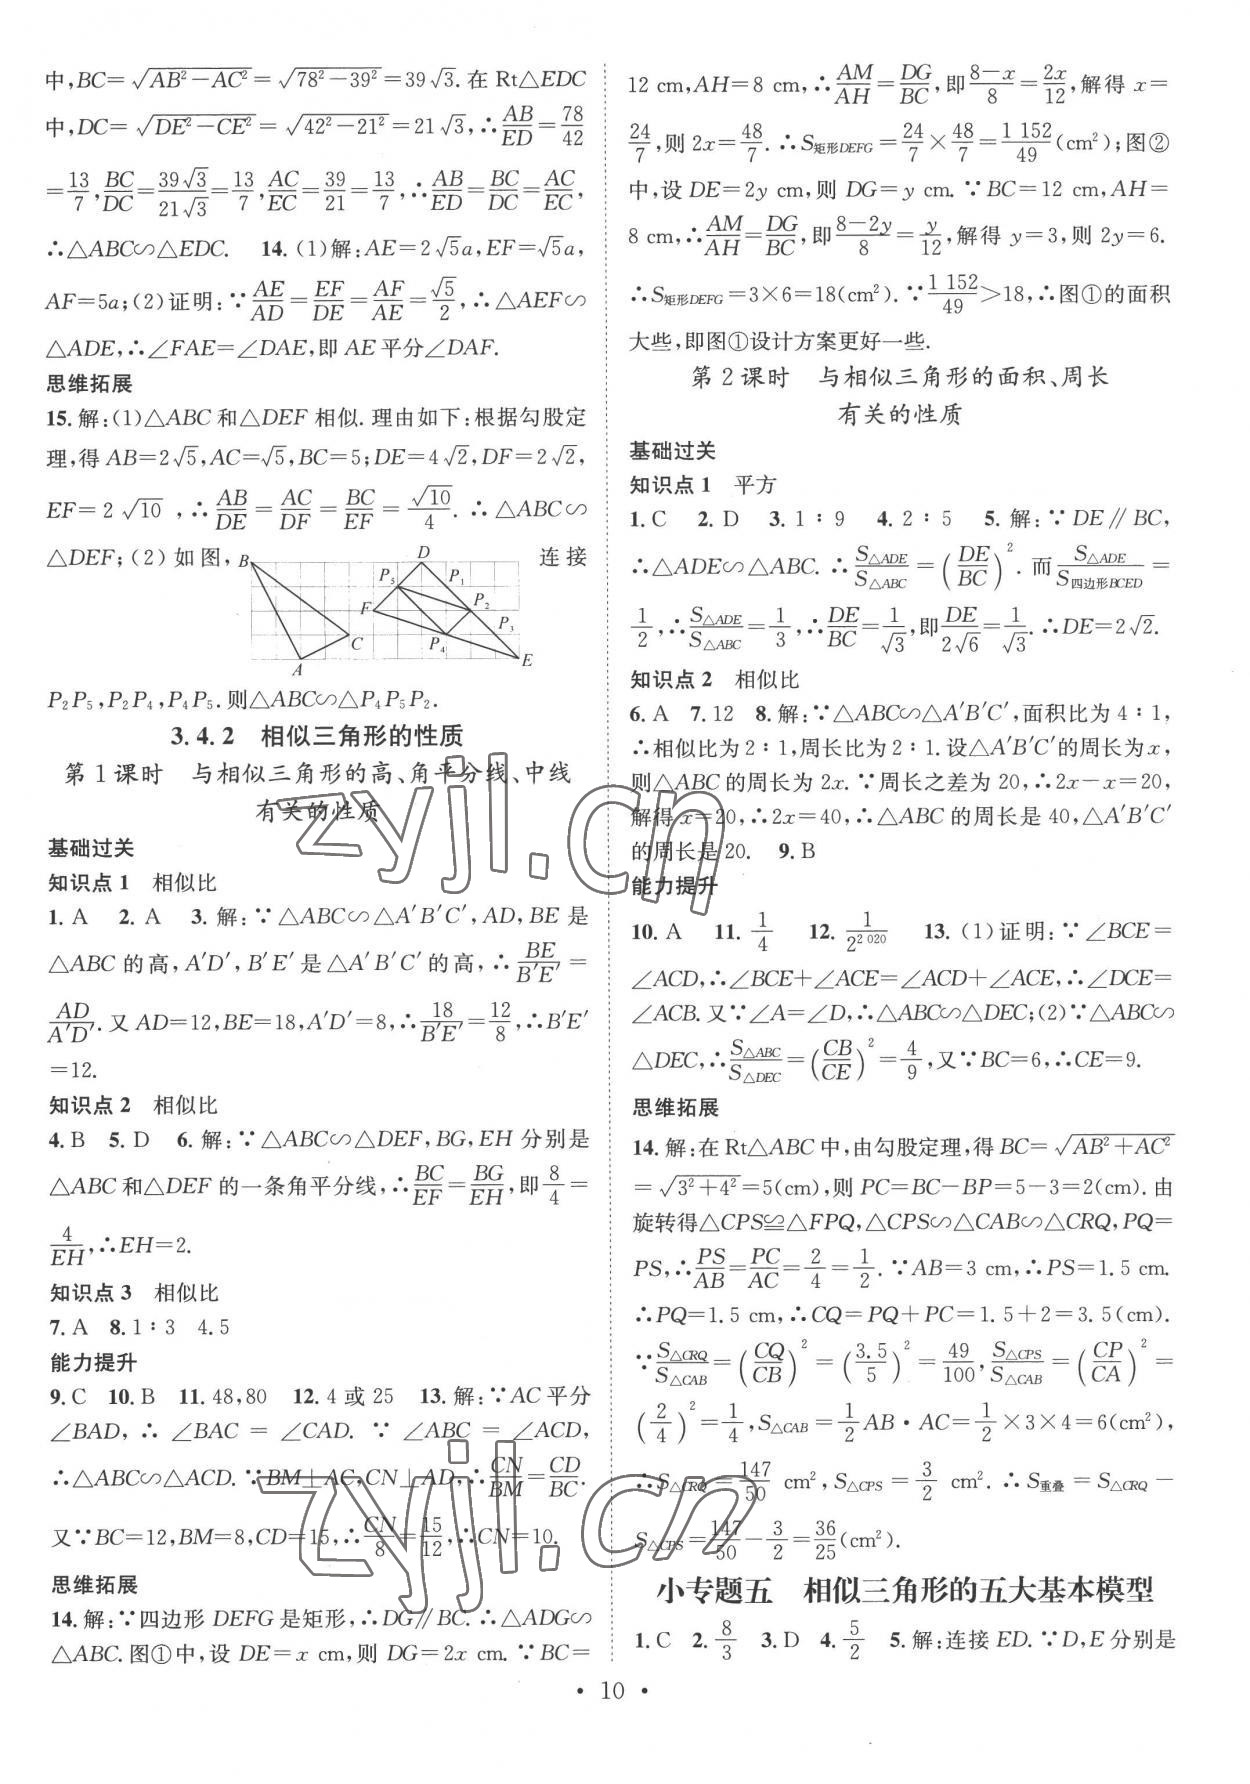 中,BC=√(AB²-AC²)=√(78²-39²)=39√3.在 Rt△EDC
中,DC=√(DE²-CE²)=√(42²-21²)=21√3,∴AB/ED=78/42
=13/7,BC/DC=39√3/21√3=13/7,AC/EC=39/21=13/7,∴AB/ED=BC/DC=AC/EC,
∴△ABC∽△EDC. 14.(1)解:AE=2√5a,EF=√5a,
AF=5a;(2)证明:∵AE/AD=EF/DE=AF/AE=√5/2,∴△AEF∽
△ADE,∴∠FAE=∠DAE,即 AE 平分∠DAF.
思维拓展
15.解:(1)△ABC和△DEF 相似.理由如下:根据勾股定
理,得 AB=2√5,AC=√5,BC=5;DE=4√2,DF=2√2,
EF=2√10,∴AB/DE=AC/DF=BC/EF=√10/4.∴△ABC∽
△DEF;(2)如图, 连接
B D P₅ P₁ F P₂ P₃ C P₄ A E
P₂P₅,P₂P₄,P₄P₅.则△ABC∽△P₄P₅P₂.
3.4.2 相似三角形的性质
第1课时 与相似三角形的高、角平分线、中线
有关的性质
基础过关
知识点1 相似比
1.A 2.A 3.解:∵△ABC∽△A′B′C′,AD,BE 是
△ABC 的高,A′D′,B′E′是△A′B′C′的高,∴BE/B′E′=
AD/A′D′.又 AD=12,BE=18,A′D′=8,∴18/B′E′=12/8,∴B′E′
=12.
知识点2 相似比
4.B 5.D 6.解:∵△ABC∽△DEF,BG,EH 分别是
△ABC 和△DEF 的一条角平分线,∴BC/EF=BG/EH,即8/4=
4/EH,∴EH=2.
知识点3 相似比
7.A 8.1∶3 4.5
能力提升
9.C 10.B 11.48,80 12.4 或 25 13.解:∵AC 平分
∠BAD,∴∠BAC=∠CAD.∵∠ABC=∠ACD,
∴△ABC∽△ACD.∵BM⊥AC,CN⊥AD,∴CN/BM=CD/BC.
又∵BC=12,BM=8,CD=15,∴CN/8=15/12,∴CN=10.
思维拓展
14.解:∵四边形 DEFG 是矩形,∴DG∥BC.∴△ADG∽
△ABC.图①中,设 DE=x cm,则 DG=2x cm.∵BC=
12 cm,AH=8 cm,∴AM/AH=DG/BC,即(8-x)/8=2x/12,解得 x=
24/7,则 2x=48/7.∴S矩形DEFG=24/7×48/7=1 152/49(cm²);图②
中,设 DE=2y cm,则 DG=y cm.∵BC=12 cm,AH=
8 cm,∴AM/AH=DG/BC,即(8-2y)/8=y/12,解得 y=3,则 2y=6.
∴S矩形DEFG=3×6=18(cm²).∵1 152/49>18,∴图①的面积
大些,即图①设计方案更好一些.
第2课时 与相似三角形的面积、周长
有关的性质
基础过关
知识点1 平方
1.C 2.D 3.1∶9 4.2∶5 5.解:∵DE∥BC,
∴△ADE∽△ABC.∴S△ADE/S△ABC=(DE/BC)².而S△ADE/S四边形BCED=
1/2,∴S△ADE/S△ABC=1/3,∴DE/BC=1/√3,即DE/2√6=1/√3.∴DE=2√2.
知识点2 相似比
6.A 7.12 8.解:∵△ABC∽△A′B′C′,面积比为 4∶1,
∴相似比为 2∶1,周长比为 2∶1.设△A′B′C′的周长为x,
则△ABC 的周长为 2x.∵周长之差为 20,∴2x-x=20,
解得 x=20,∴2x=40,∴△ABC 的周长是 40,△A′B′C′
的周长是 20. 9.B
能力提升
10.A 11.1/4 12.1/2^(2 020) 13.(1)证明:∵∠BCE=
∠ACD,∴∠BCE+∠ACE=∠ACD+∠ACE,∴∠DCE=
∠ACB.又∵∠A=∠D,∴△ABC∽△DEC;(2)∵△ABC∽
△DEC,∴S△ABC/S△DEC=(CB/CE)²=4/9,又∵BC=6,∴CE=9.
思维拓展
14.解:在 Rt△ABC 中,由勾股定理,得 BC=√(AB²+AC²)
=√(3²+4²)=5(cm),则 PC=BC-BP=5-3=2(cm).由
旋转得△CPS≌△FPQ,△CPS∽△CAB∽△CRQ,PQ=
PS,∴PS/AB=PC/AC=2/4=1/2.∵AB=3 cm,∴PS=1.5 cm.
∴PQ=1.5 cm,∴CQ=PQ+PC=1.5+2=3.5(cm).
∵S△CRQ/S△CAB=(CQ/CB)²=(3.5/5)²=49/100,S△CPS/S△CAB=(CP/CA)²=
(2/4)²=1/4,S△CAB=1/2AB·AC=1/2×3×4=6(cm²),
∴S△CRQ=147/50 cm²,S△CPS=3/2 cm².∴S重叠=S△CRQ-
S△CPS=147/50-3/2=36/25(cm²).
小专题五 相似三角形的五大基本模型
1.C 2.8/3 3.D 4.5/2 5.解:连接 ED.∵D,E 分别是
·10·
zyjl.cn
zyjl.cn